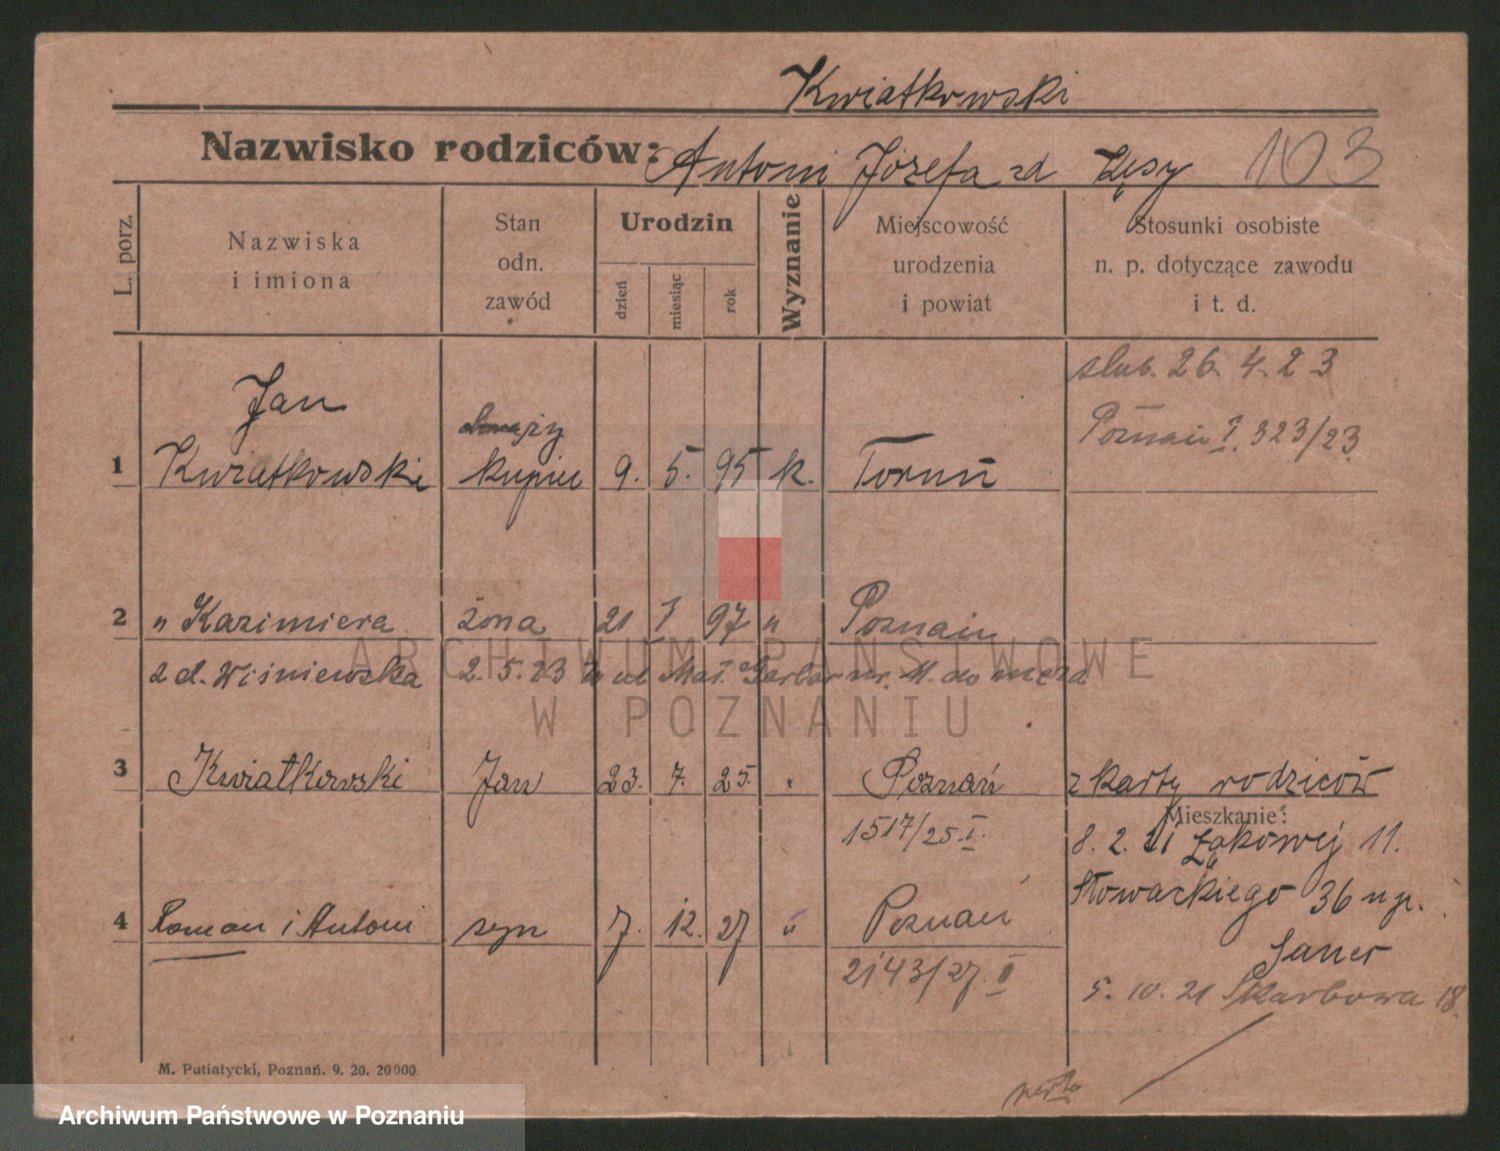 Kwiatkowski
Nazwisko rodziców: Antoni Józefa zd Kęsy 103
L. porz.
Nazwiska i imiona
Stan odn. zawód
Urodzin
dzień miesiąc rok
Wyznanie
Miejscowość urodzenia i powiat
Stosunki osobiste n. p. dotyczące zawodu i t. d.
ślub. 26. 4. 23
Poznań I. 323/23
Jan
1 Kwiatkowski kupiec 9. 5. 95 k. Toruń
2 " Kazimiera żona 21 I 97 " Poznań
zd. Wiśniewska 2. 5. 23 ul Mał. Garbar nr. 11. do męża
3 Kwiatkowski Jan 23. 7. 25. " Poznań z karty rodziców
1517/25. I.
Mieszkanie:
8. 2. 21 Łąkowej 11.
Słowackiego 36
4 Roman i Antoni syn 7. 12. 27 " Poznań
2143/27. II
5. 10. 21 Skarbowa 18.
M. Putiatycki, Poznań. 9. 20. 20000.
ARCHIWUM PAŃSTWOWE
W POZNANIU
Archiwum Państwowe w Poznaniu